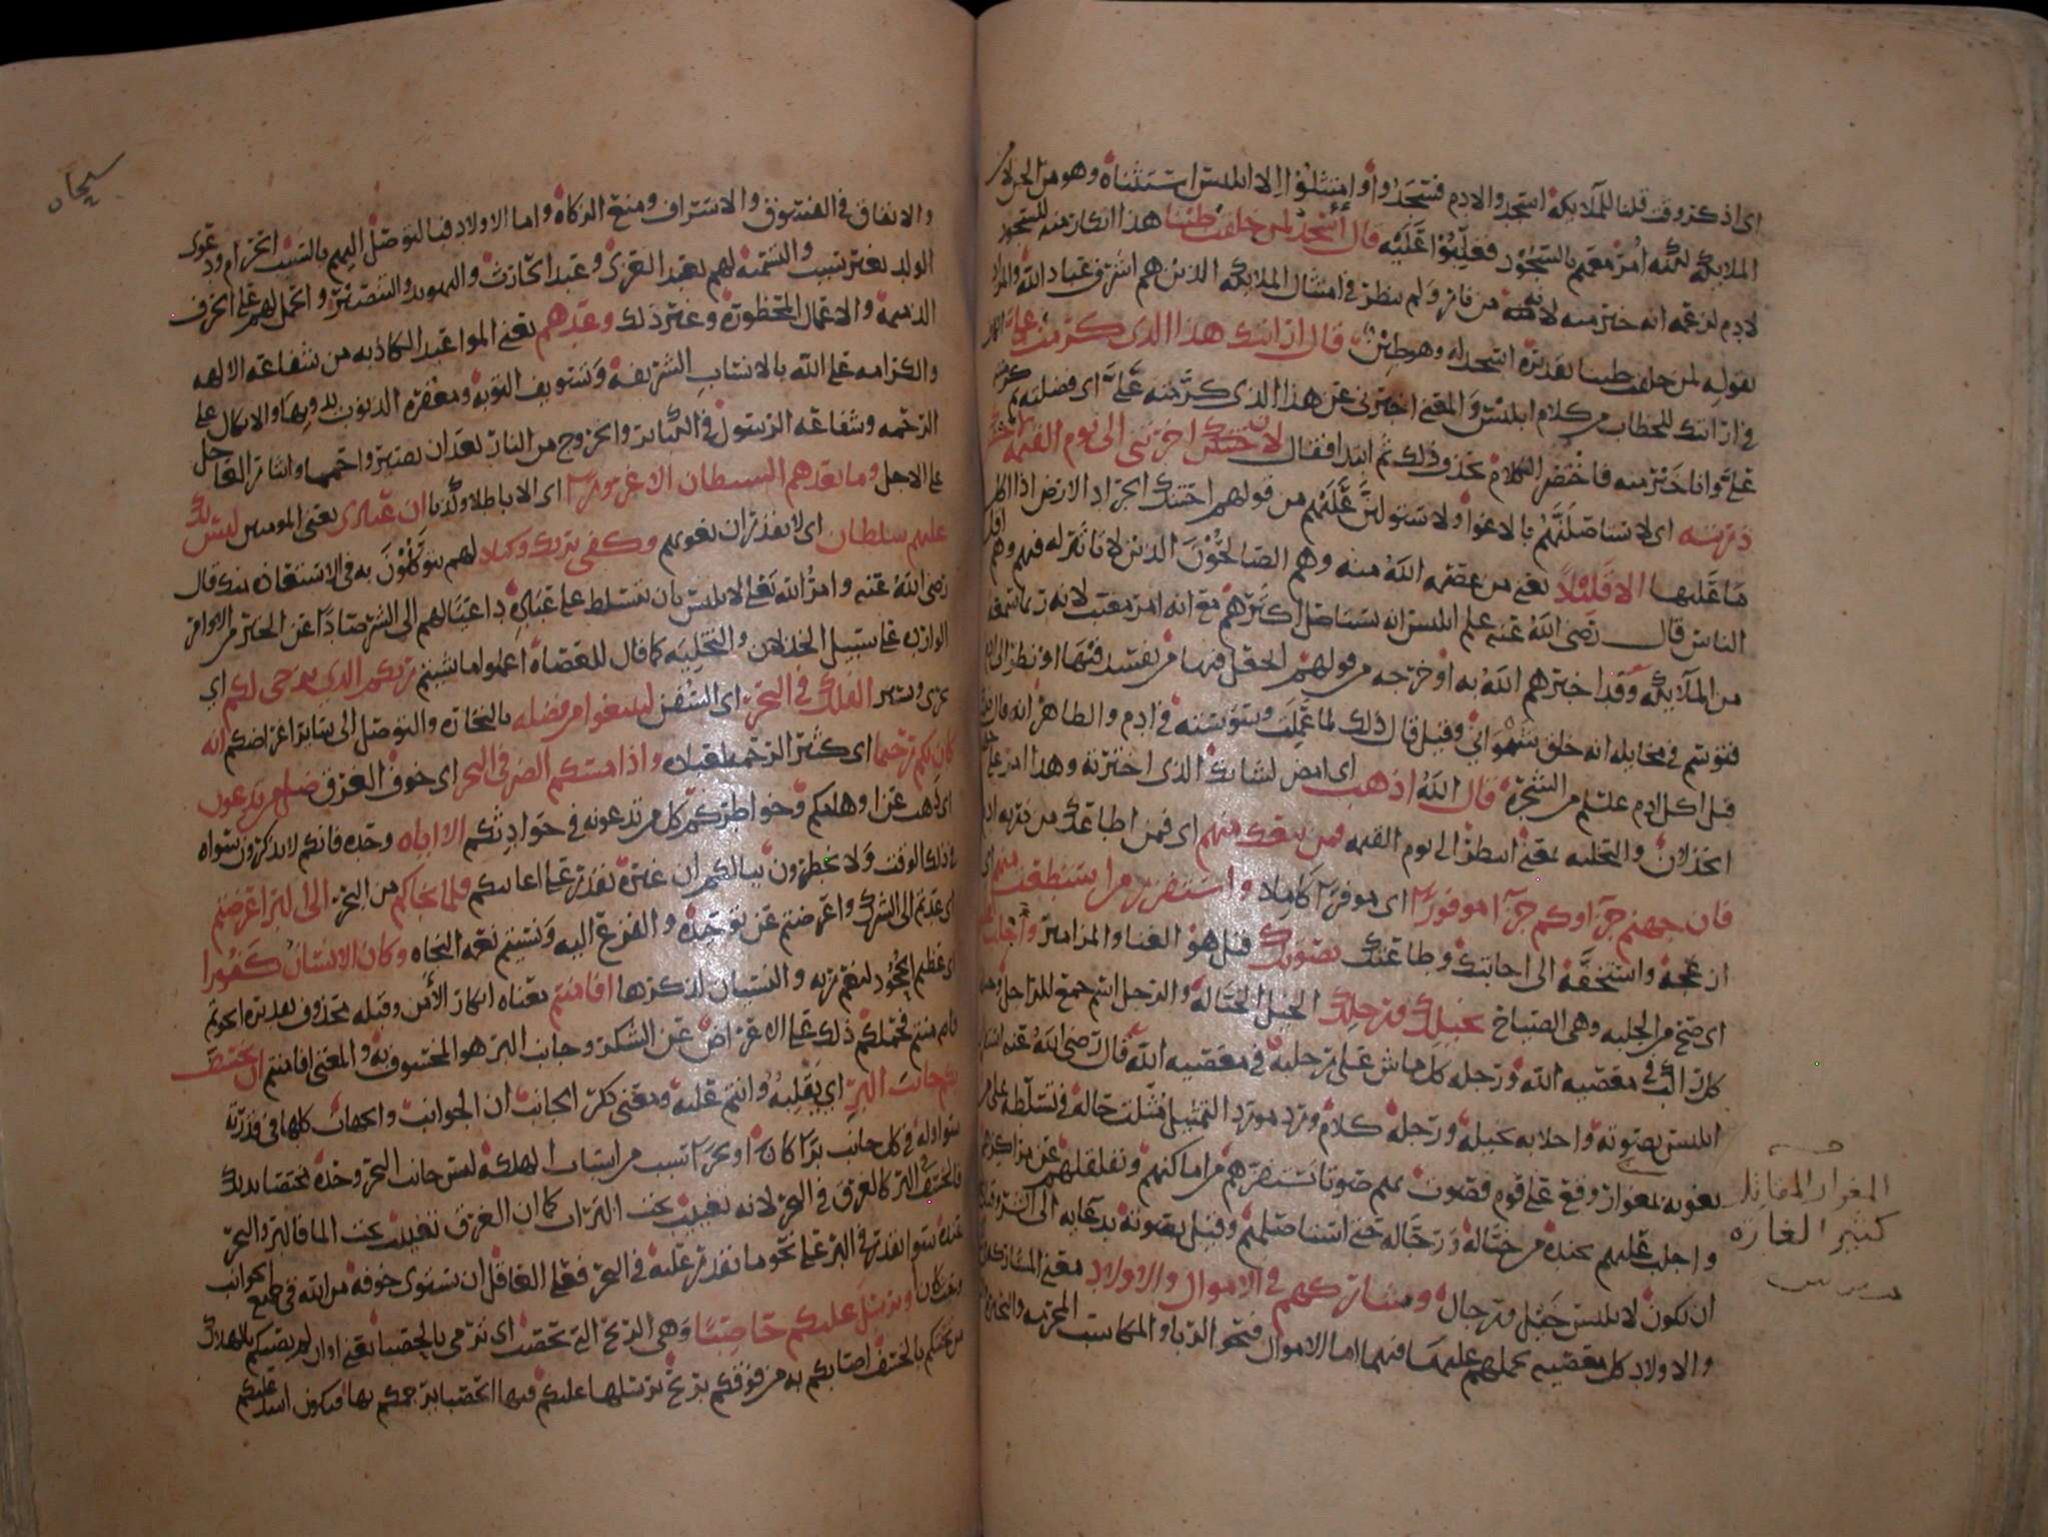 اى اذكر وقت قلنا للملايكة اسجدوا لادم فسجدوا او امتثلوا الا ابليس استثناه وهو من الجن لان
الملايكة لكنه امر معهم بالسجود فغلبوا عليه قال أاسجد لمن خلقت طينا هذا انكار منه للسجود
لادم لزعمه انه خير منه لانه من نار ولم ينظر فى امتثال الملايكة الذين هم اشرف عباد الله والمراد
بقوله لمن خلقت طينا تقديره اسجد له وهو طين قال ارايتك هذا الذى كرمت على الكاف
فى ارايتك للخطاب من كلام ابليس والمعنى اخبرنى عن هذا الذى كرمته على اى فضلته لم كرمته
على وانا خير منه فاختصر الكلام بحذف ذلك ثم ابتدا فقال لان اخرتنى الى يوم القيمه لاحتنكن
ذريته اى لاستاصلنهم بالاغوا ولاستولين عليهم من قولهم احتنك الجراد الارض اذا اكل
ما عليها الا قليلا يعنى من عصمه الله منه وهم الصالحون الذين لا تاثير له فيهم وهم اقل
الناس قال رضى الله عنه علم ابليس انه يستاصل اكثرهم مع انه امر مغيب لانه ربما سمعه
من الملايكة وقد اخبرهم الله به او خرجه من قولهم اتجعل فيها من يفسد فيها او نظر اليه
فتوسم فى مخايله انه خلق شهوانى وقيل قال ذلك لما عملت وسوسته فى ادم والظاهر انه قال ذلك
قبل اكل ادم عليلم من الشجرة قال الله اذهب اى امض لشانك الذى اخترته وهذا امر على جهة
الخذلان والتخليه يعنى انتظر الى يوم القيمه فمن تبعك منهم اى فمن اطاعك من ذريه ادم
فان جهنم جزاوكم جزآ موفورا اى موفرا كاملا واستفزز من استطعت منهم اى
ازعجه واستخفه الى اجابتك وطاعتك بصوتك قيل هو الغنا والمزامير واجلب
اى صح من الجلبه وهى الصياح بخيلك ورجلك الخيل الخيالة والرجل اسم جمع للراجل
كل راكب فى معصيه الله ورجله كل ماش على رجليه فى معصيه الله قال رضى الله عنه
ابليس بصوته واجلابه بخيله ورجله كلام ورد مورد التمثيل مثلت حاله فى تسلطه على من
يغويه بمغوار وقع على قوم فصوت بهم صوتا يستفزهم من اماكنهم ويقلقلهم عن مراكزهم
واجلب عليهم بجنده من خيالة ورجالة حتى استاصلهم وقيل بصوته بدعايه الى الشر
ان تكون لابليس خيل ورجال وشاركهم فى الاموال والاولاد معنى المشاركة
والاولاد كل معصيه يحملهم عليها فيهما اما الاموال فنحو الربا والمكاسب المحرمه
المغوار المقاتل
كثير الغاره
سبحان
والانفاق فى الفسوق والاسراف ومنع الزكاة واما الاولاد فبالتوصل اليهم بالسبب الحرام ودعوى
الولد بغير سبب والتسمية لهم بعبد العزى وعبد الحارث والتهويد والتنصير والحمل لهم على الحرف
الذميمة والاعمال المحظورة وغير ذلك وعدهم يعنى المواعيد الكاذبه من شفاعه الالهه
والكرامه على الله بالانساب الشريفه وتسويف التوبه ومغفره الذنوب بدونها والاتكال على
الرحمه وشفاعه الرسول فى الكباير والخروج من النار بعد ان يصيروا حمما وايثار العاجل
على الاجل وما يعدهم الشيطان الا غرورا اى الا باطلا وكذبا ان عبادى يعنى المومنين ليس لك
عليهم سلطان اى لا تقدر ان تغويهم وكفى بربك وكيلا لهم يتوكلون به فى الاستعاذه منك قال
رضى الله عنه وامر الله تعلى لابليس بان يتسلط على عباده داعيا لهم الى الشر صادا عن الخير من الاوامر
الوارده على سبيل الخذلان والتخليه كما قال للعصاة اعملوا ما شيتم ربكم الذى يزجى لكم اى
يجرى ويسير الفلك فى البحر اى السفن لتبتغوا من فضله بالتجاره والتوصل الى ساير اغراضكم انه
كان بكم رحيما اى كثير الرحمه لعباده واذا مسكم الضر فى البحر اى خوف الغرق ضل من تدعون
اى ذهب عن اوهامكم وخواطركم كل من تدعونه فى حوادثكم الا اياه وحده فانكم لا تذكرون سواه
فى ذلك الوقت ولا يخطرون ببالكم ان غيره يقدر على اعانتكم فلما نجاكم من البحر الى البر اعرضتم
اى عدتم الى الشرك واعرضتم عن توحيده والفزع اليه ونسيتم نعمه النجاه وكان الانسان كفورا
اى عظيم الجحود لنعم ربه والنسيان لذكرها افامنتم معناه انكار الامن وقبله محذوف تقديره انجوتم
فامنتم فحملكم ذلك على الاعراض عن الشكر وجانب البر هو المخسوف به والمعنى افامنتم ان يخسف
بكم جانب البر اى يقلبه وانتم عليه ومعنى ذكر الجانب ان الجوانب والجهات كلها فى قدرته
سوا وله فى كل جانب برا كان او بحرا سبب من اسباب الهلكه ليس جانب البحر وحده مختصا بذلك
فالخسف فى البر كالغرق فى البحر لانه تغييب تحت التراب كما ان الغرق تغييب تحت الما فالبر والبحر
عنده سوا يقدر فى البر على نحو ما يقدر عليه فى البحر فعلى العاقل ان يستوى خوفه من الله فى جميع الجوانب
وحيث كان او يرسل عليكم حاصبا وهى الريح التى تحصب اى ترمى بالحصبا يعنى او ان لم يصيبكم بالهلاك
من تحتكم بالخسف اصابكم به من فوقكم بريح يرسلها عليكم فيها الحصبا يرجمكم بها فيكون اشد عليكم